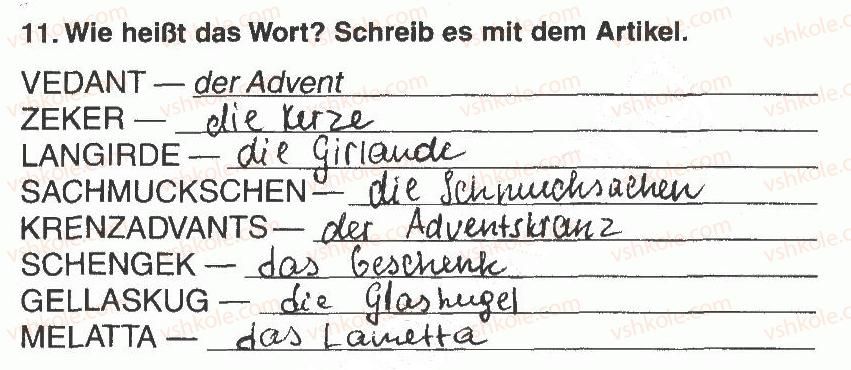 11. Wie heißt das Wort? Schreib es mit dem Artikel.
VEDANT — der Advent
ZEKER — die Kerze
LANGIRDE — die Girlande
SACHMUCKSCHEN — die Schmucksachen
KRENZADVANTS — der Adventskranz
SCHENGEK — das Geschenk
GELLASKUG — die Glaskugel
MELATTA — das Lametta